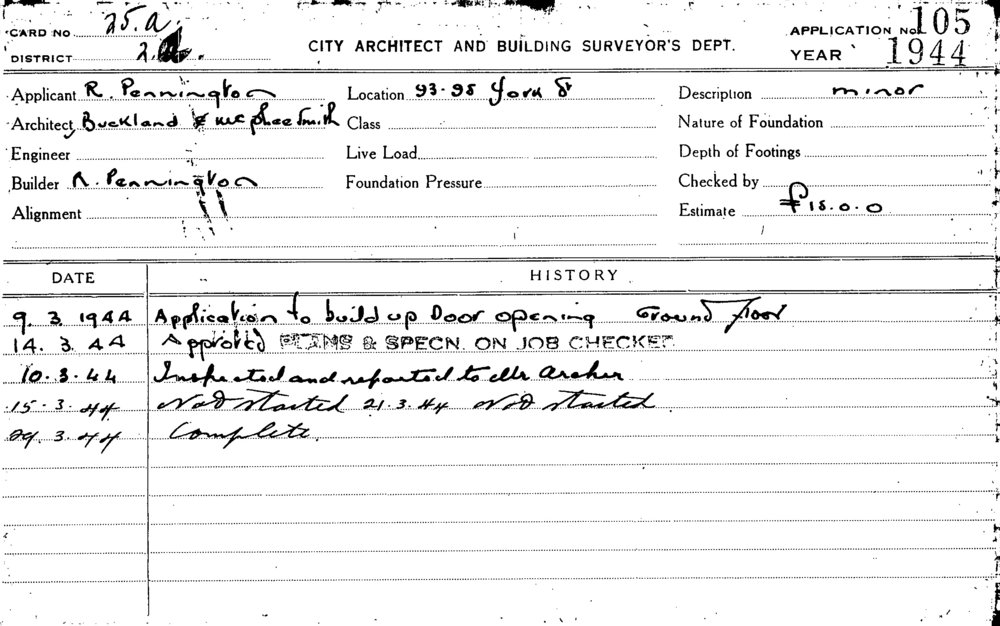 CARD NO 25.a.
APPLICATION No. 105
DISTRICT 2.
CITY ARCHITECT AND BUILDING SURVEYOR'S DEPT.
YEAR 1944
Applicant R. Pennington Location 93-95 York St Description minor
Architect Buckland & McPhee Smith Class Nature of Foundation
Engineer Live Load Depth of Footings
Builder R. Pennington Foundation Pressure Checked by
Alignment Estimate £15.0.0
DATE HISTORY
9. 3. 1944 Application to build up Door opening Ground Floor
14. 3. 44 Approved PLANS & SPECN. ON JOB CHECKED
10.3.44 Inspected and reported to Mr Archer
15.3.44 Not started 21.3.44 Not started
29.3.44 Complete.